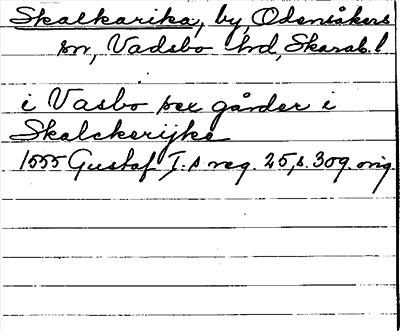 Skalkarika, by Odensåkers
sn, Vadsbo hd, Skarab. l
i Vasbo sex gårder i
Skalckerijke
1555 Gustaf I:s reg. 25, s. 309. orig.